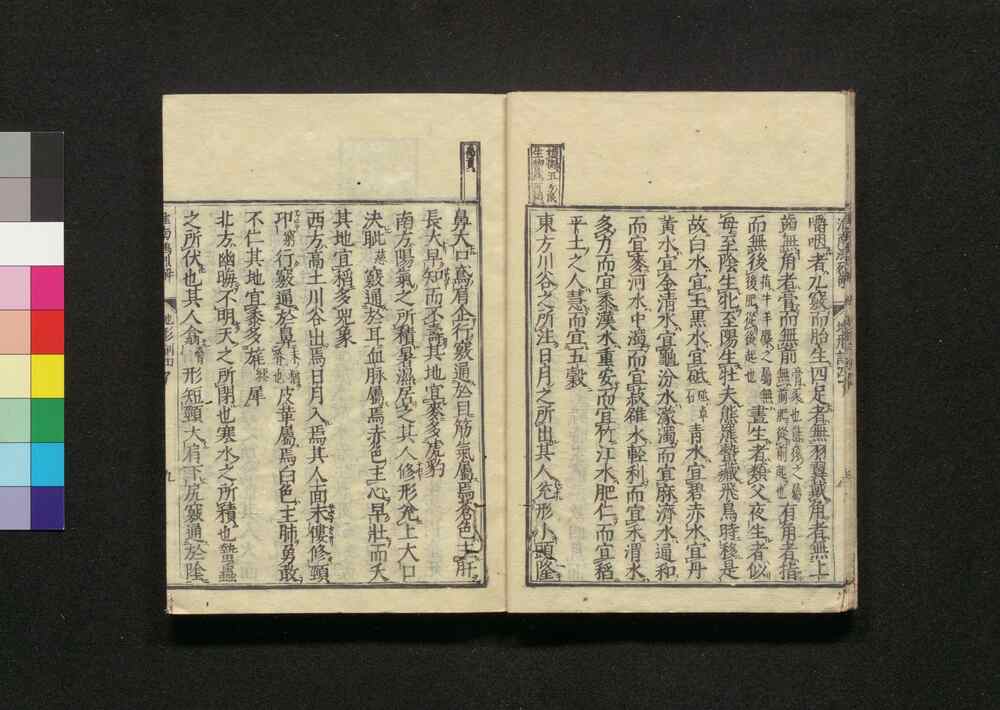 嚼咽者九竅而胎生四足者無羽翼戴角者無上
齒無角者膏而無前有角者指
而無後晝生者類父夜生者似
母至陰生牝至陽生牡夫熊羆蟄藏飛鳥時移是
故白水宜玉黑水宜砥青水宜碧赤水宜丹
黃水宜金清水宜龜汾水濛濁而宜麻濟水通和
而宜麥河水中濁而宜菽雒水輕利而宜禾渭水
多力而宜黍漢水重安而宜竹江水肥仁而宜稻
平土之人慧而宜五穀
東方川谷之所注日月之所出其人兌形小頭隆
鼻大口鳶肩企行竅通於目筋氣屬焉蒼色主肝
長大早知而不壽其地宜麥多虎豹
南方陽氣之所積暑濕居之其人修形兌上大口
決眦竅通於耳血脉屬焉赤色主心早壯而夭
其地宜稻多兕象
西方高土川谷出焉日月入焉其人面末僂修頸
卬行竅通於鼻皮革屬焉白色主肺勇敢
不仁其地宜黍多旄犀
北方幽晦不明天之所閉也寒水之所積也蟄蟲
之所伏也其人翕形短頸大肩下尻竅通於陰